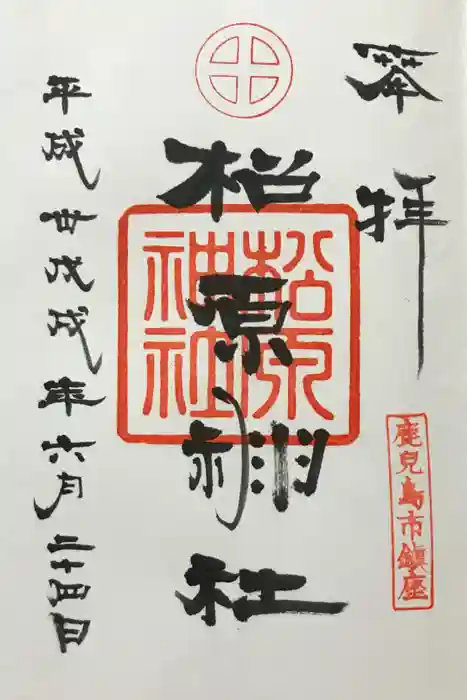 奉拝
鹿児島市鎮座
松原神社
松原神社
平成卅戊戌年六月二十四日